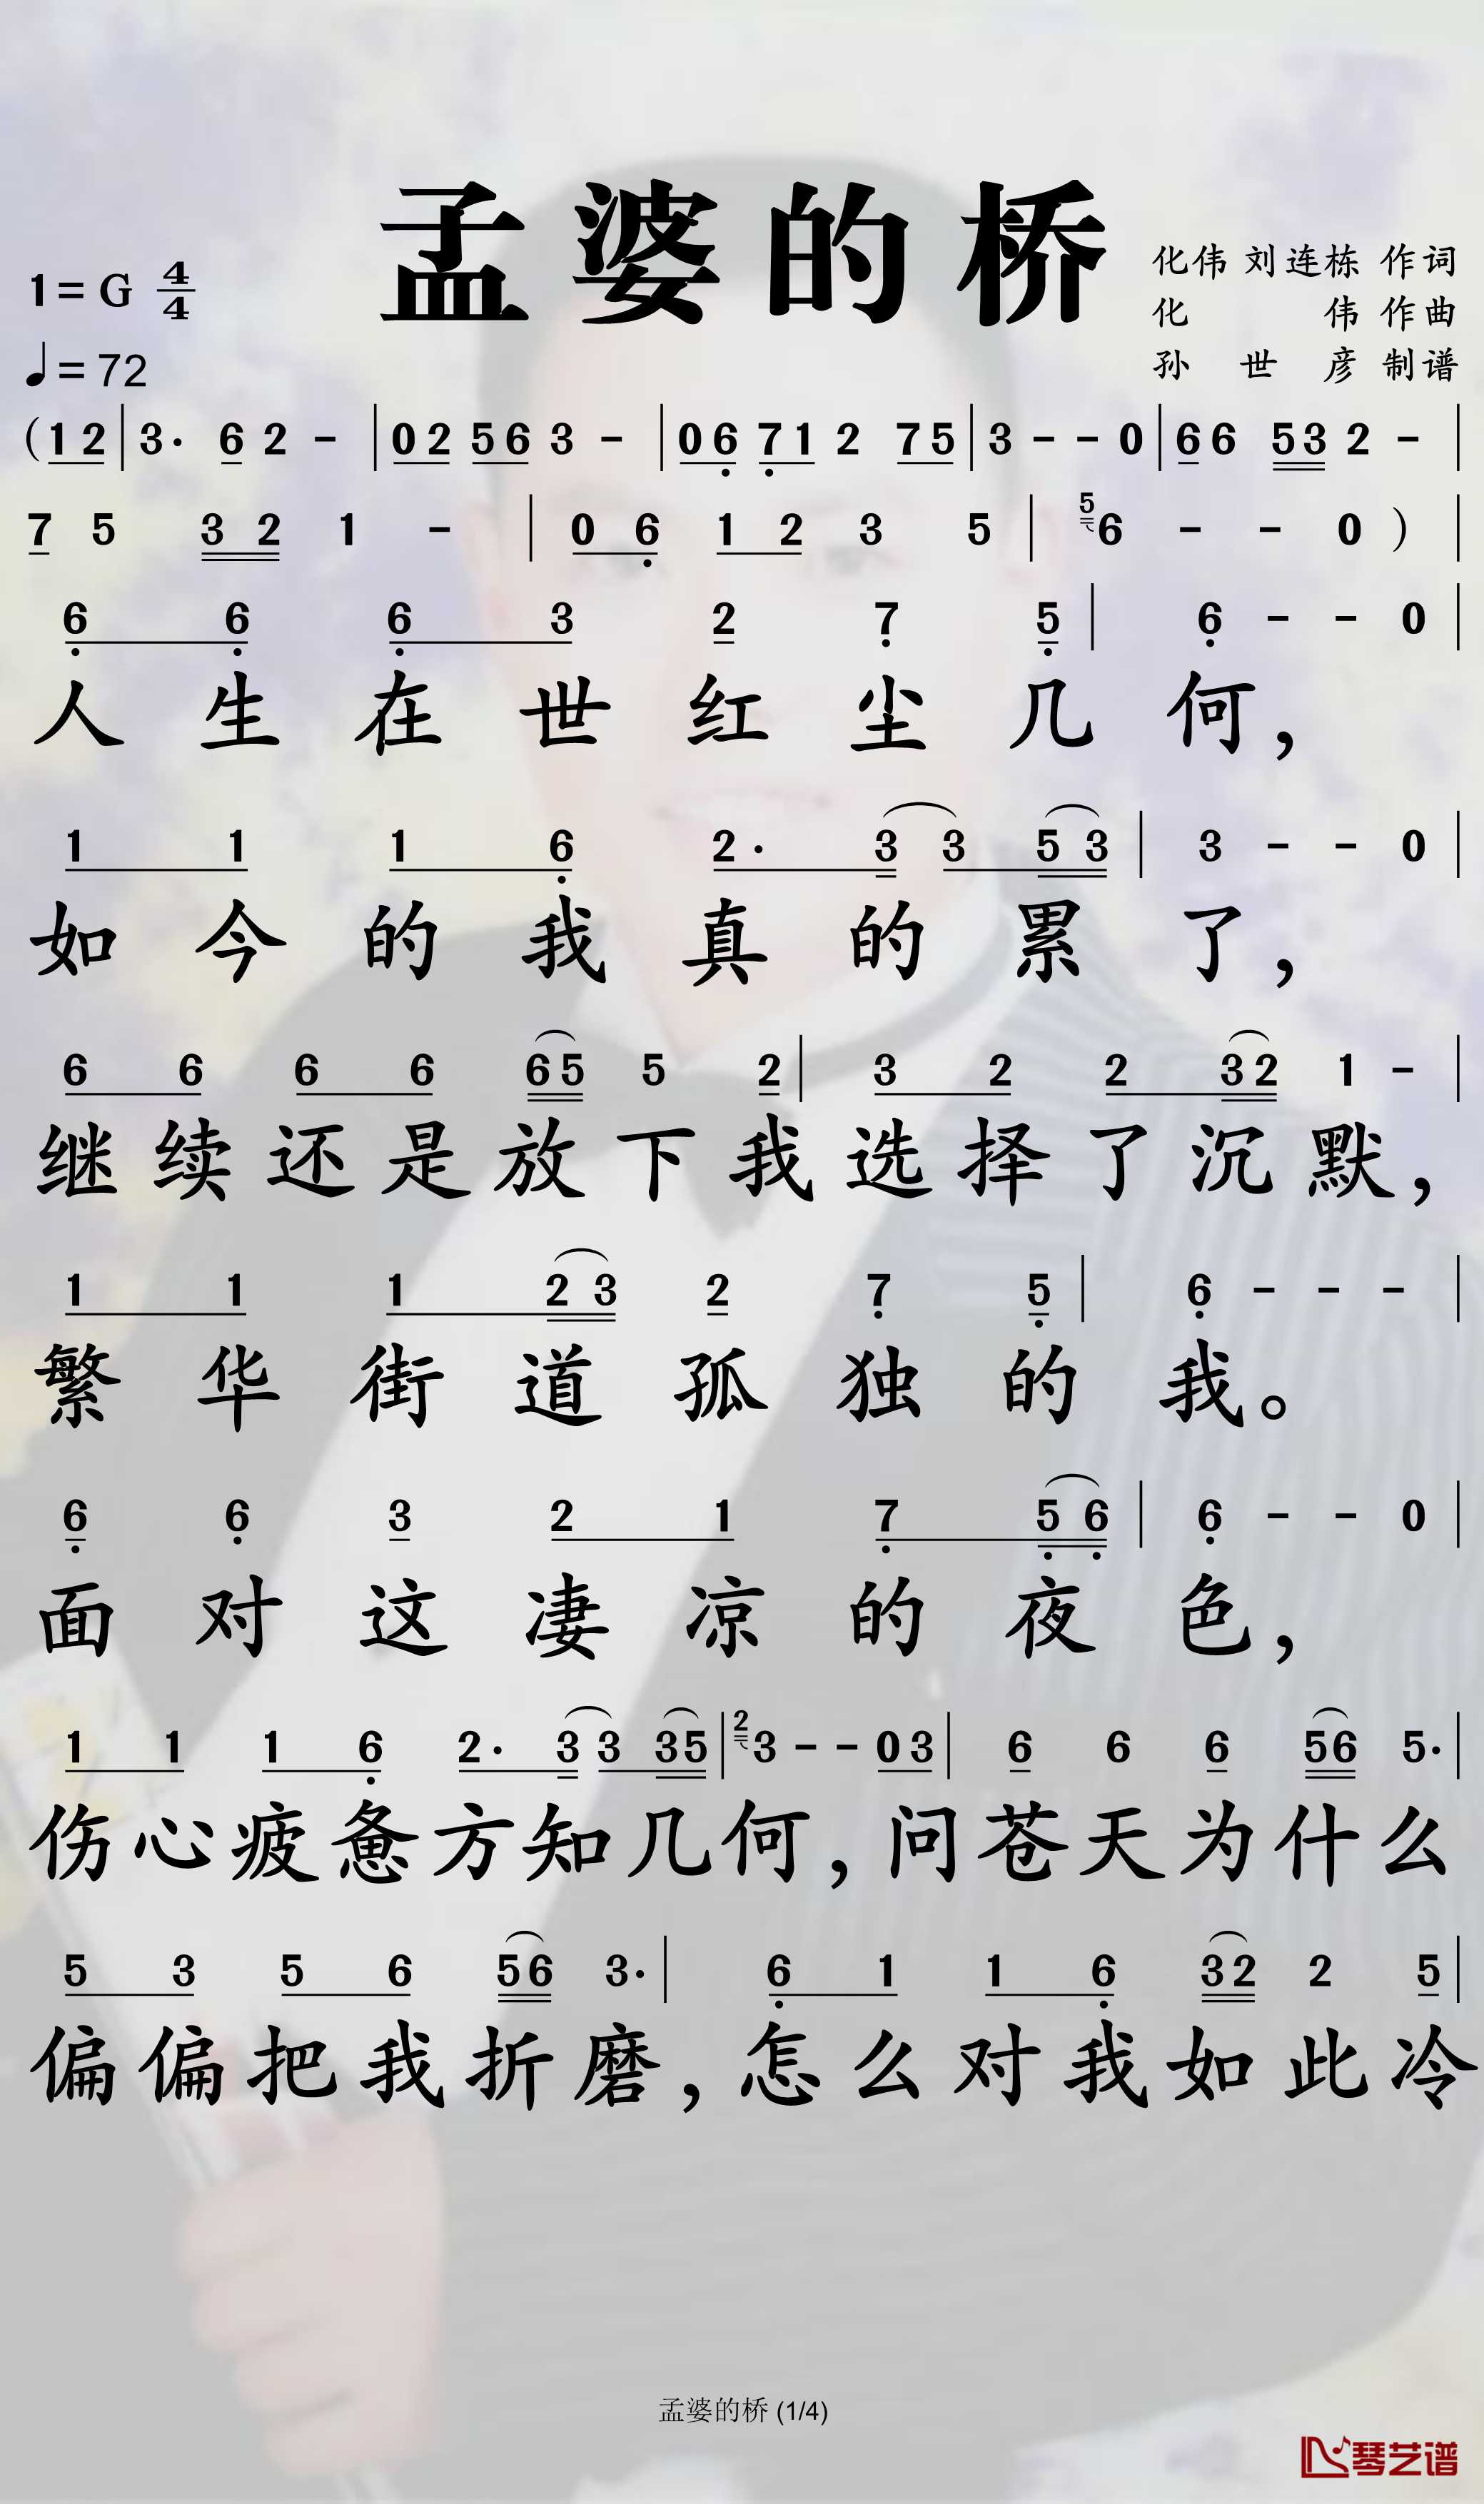 孟婆的桥
1=G 4/4
♩=72
化伟 刘连栋 作词
化 伟 作曲
孙 世 彦 制谱
(1 2 | 3· 6 2 - | 0 2 5 6 3 - | 0 6 7 1 2 7 5 | 3 - - 0 | 6 6 5 3 2 - |
7 5 3 2 1 - | 0 6 1 2 3 5 | 5 6 - - 0 ) |
6 6 6 3 2 7 5 | 6 - - 0 |
人生在世红尘几何,
1 1 1 6 2· 3 3 5 3 | 3 - - 0 |
如今的我真的累了,
6 6 6 6 6 5 5 2 | 3 2 2 3 2 1 - |
继续还是放下我选择了沉默,
1 1 1 2 3 2 7 5 | 6 - - - |
繁华街道孤独的我。
6 6 3 2 1 7 5 6 | 6 - - 0 |
面对这凄凉的夜色,
1 1 1 6 2· 3 3 3 5 | 2 3 - - 0 3 | 6 6 6 5 6 5· |
伤心疲惫方知几何,问苍天为什么
5 3 5 6 5 6 3· | 6 1 1 6 3 2 2 5 |
偏偏把我折磨,怎么对我如此冷
孟婆的桥 (1/4)
琴艺谱